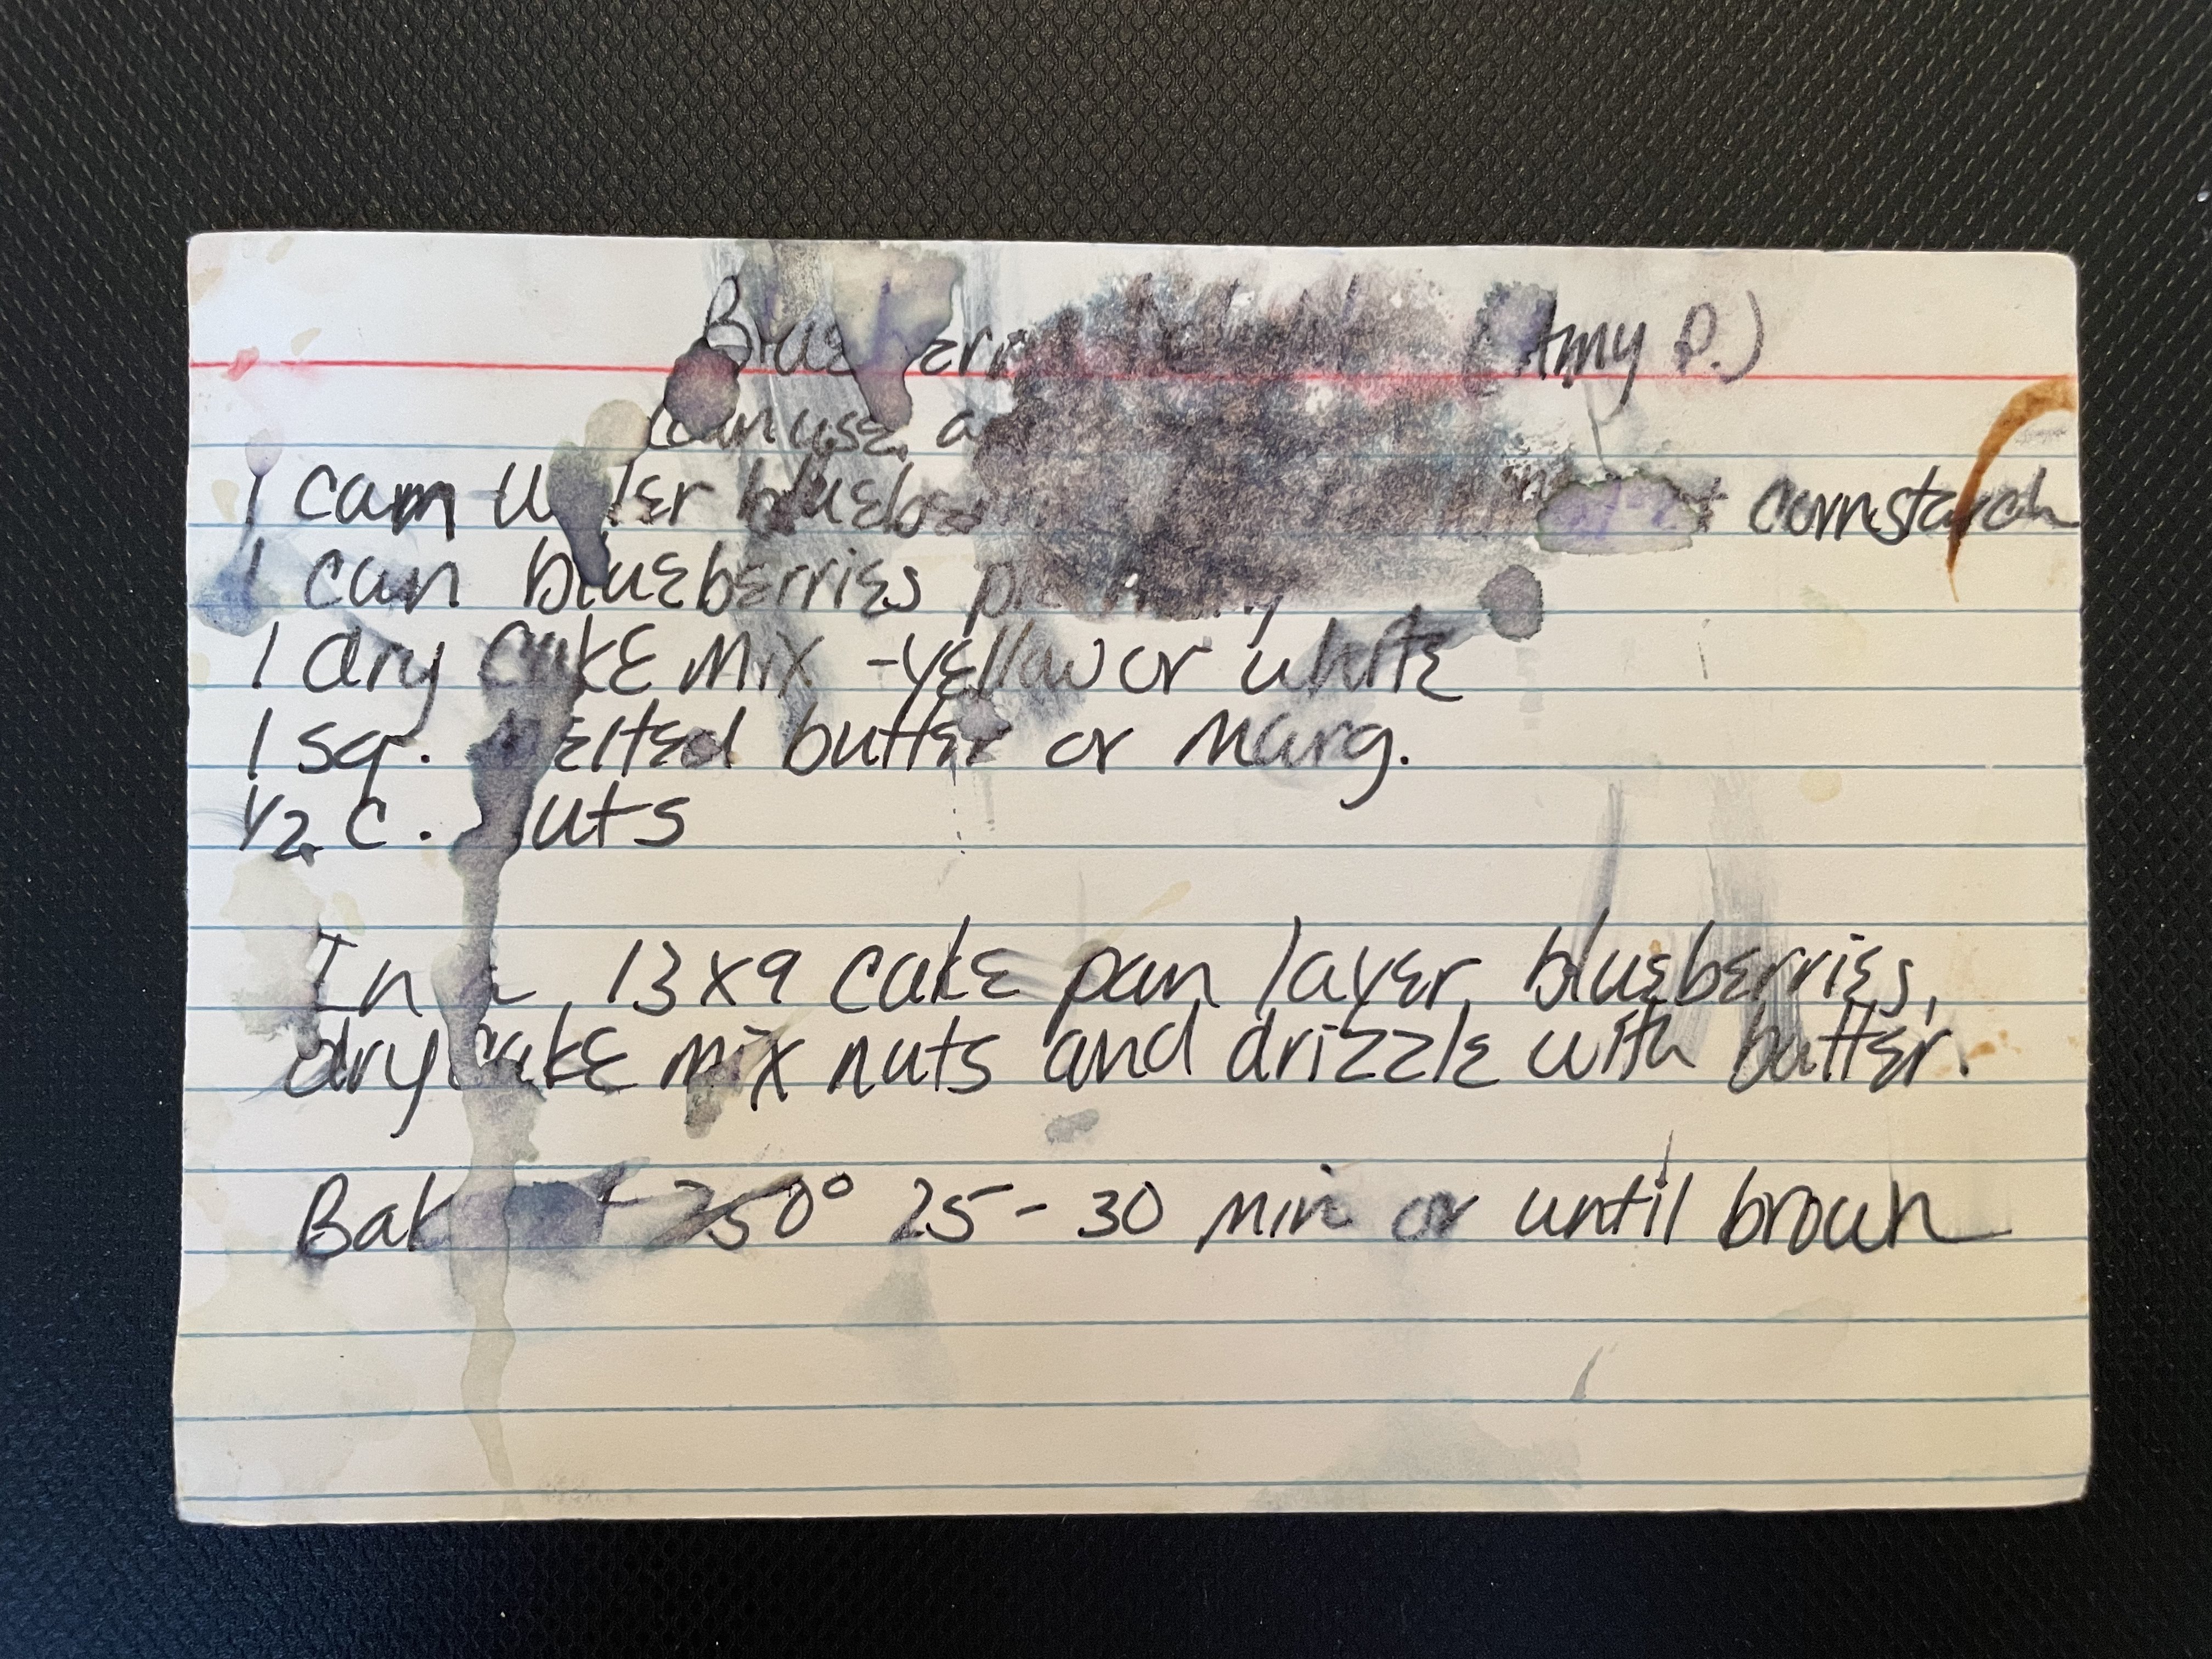 Blueberry (Amy P.)
can use a
1 can water cornstarch
1 can blueberries
1 dry cake mix - yellow or white
1 sq. melted butter or marg.
1/2 c. nuts
In a 13x9 cake pan layer blueberries,
dry cake mix nuts and drizzle with butter.
Bake at 350° 25-30 min or until brown